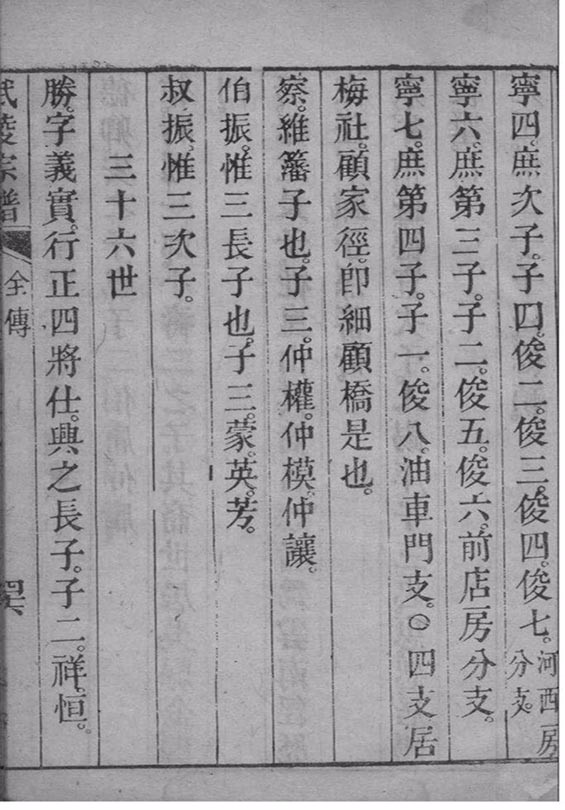 寧四。庶次子。子四。俊二。俊三。俊四。俊七。河西房分支。
寧六。庶第三子。子二。俊五。俊六。前店房分支。
寧七。庶第四子。子一。俊八。油車門支。○四支居
梅社。顧家徑。卽細顧橋是也。
察。維籓子也。子三。仲權。仲模。仲讓。
伯振。惟三長子也。子三。蒙。英。芳。
叔振。惟三次子。
三十六世
勝。字義實。行正四將仕。興之長子。子二。祥。恒。
宗譜
全傳